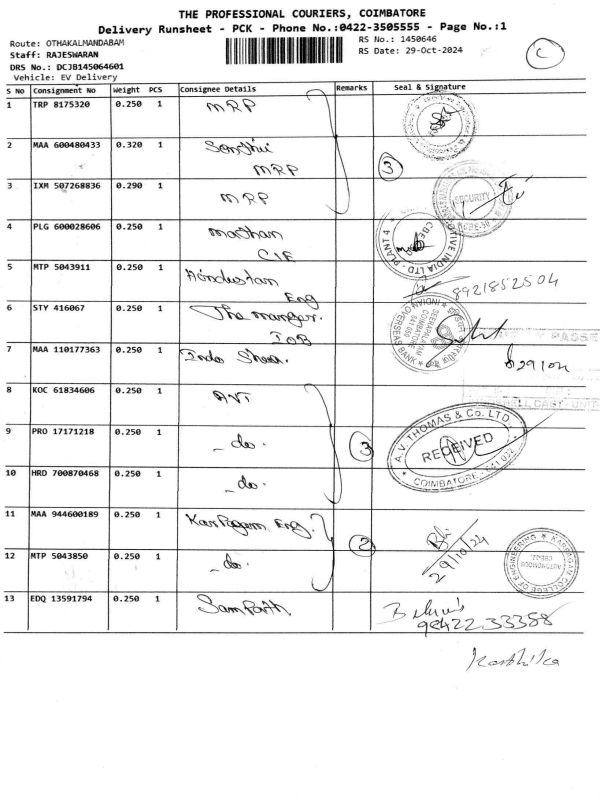 THE PROFESSIONAL COURIERS, COIMBATORE
Delivery Runsheet - PCK - Phone No.:0422-3505555 - Page No.:1
Route: OTHAKALMANDABAM
RS No.: 1450646
Staff: RAJESWARAN
RS Date: 29-Oct-2024
DRS No.: DCJB145064601
Vehicle: EV Delivery
C
S No Consignment No Weight PCS Consignee Details Remarks Seal & Signature
1 TRP 8175320 0.250 1 MRP
2 MAA 600480433 0.320 1
MRP
3
3 IXM 507268836 0.290 1 MRP
SECURITY
4 PLG 600028606 0.250 1
PLANT 4
5 MTP 5043911 0.250 1 Hindustan
Eng
8921852504
6 STY 416067 0.250 1 The manger.
IOB
INDIAN OVERSEAS BANK
7 MAA 110177363 0.250 1
8 KOC 61834606 0.250 1 AVT
9 PRO 17171218 0.250 1 - do.
3
A.V. THOMAS & Co. LTD.
RECEIVED
COIMBATORE - 641 032
10 HRD 700870468 0.250 1 - do.
11 MAA 944600189 0.250 1 Karpagam Eng.
2
29/10/24
KARPAGAM COLLEGE OF ENGINEERING
AUTONOMOUS
12 MTP 5043850 0.250 1 - do.
13 EDQ 13591794 0.250 1 Sampath
9842233358
Karthika